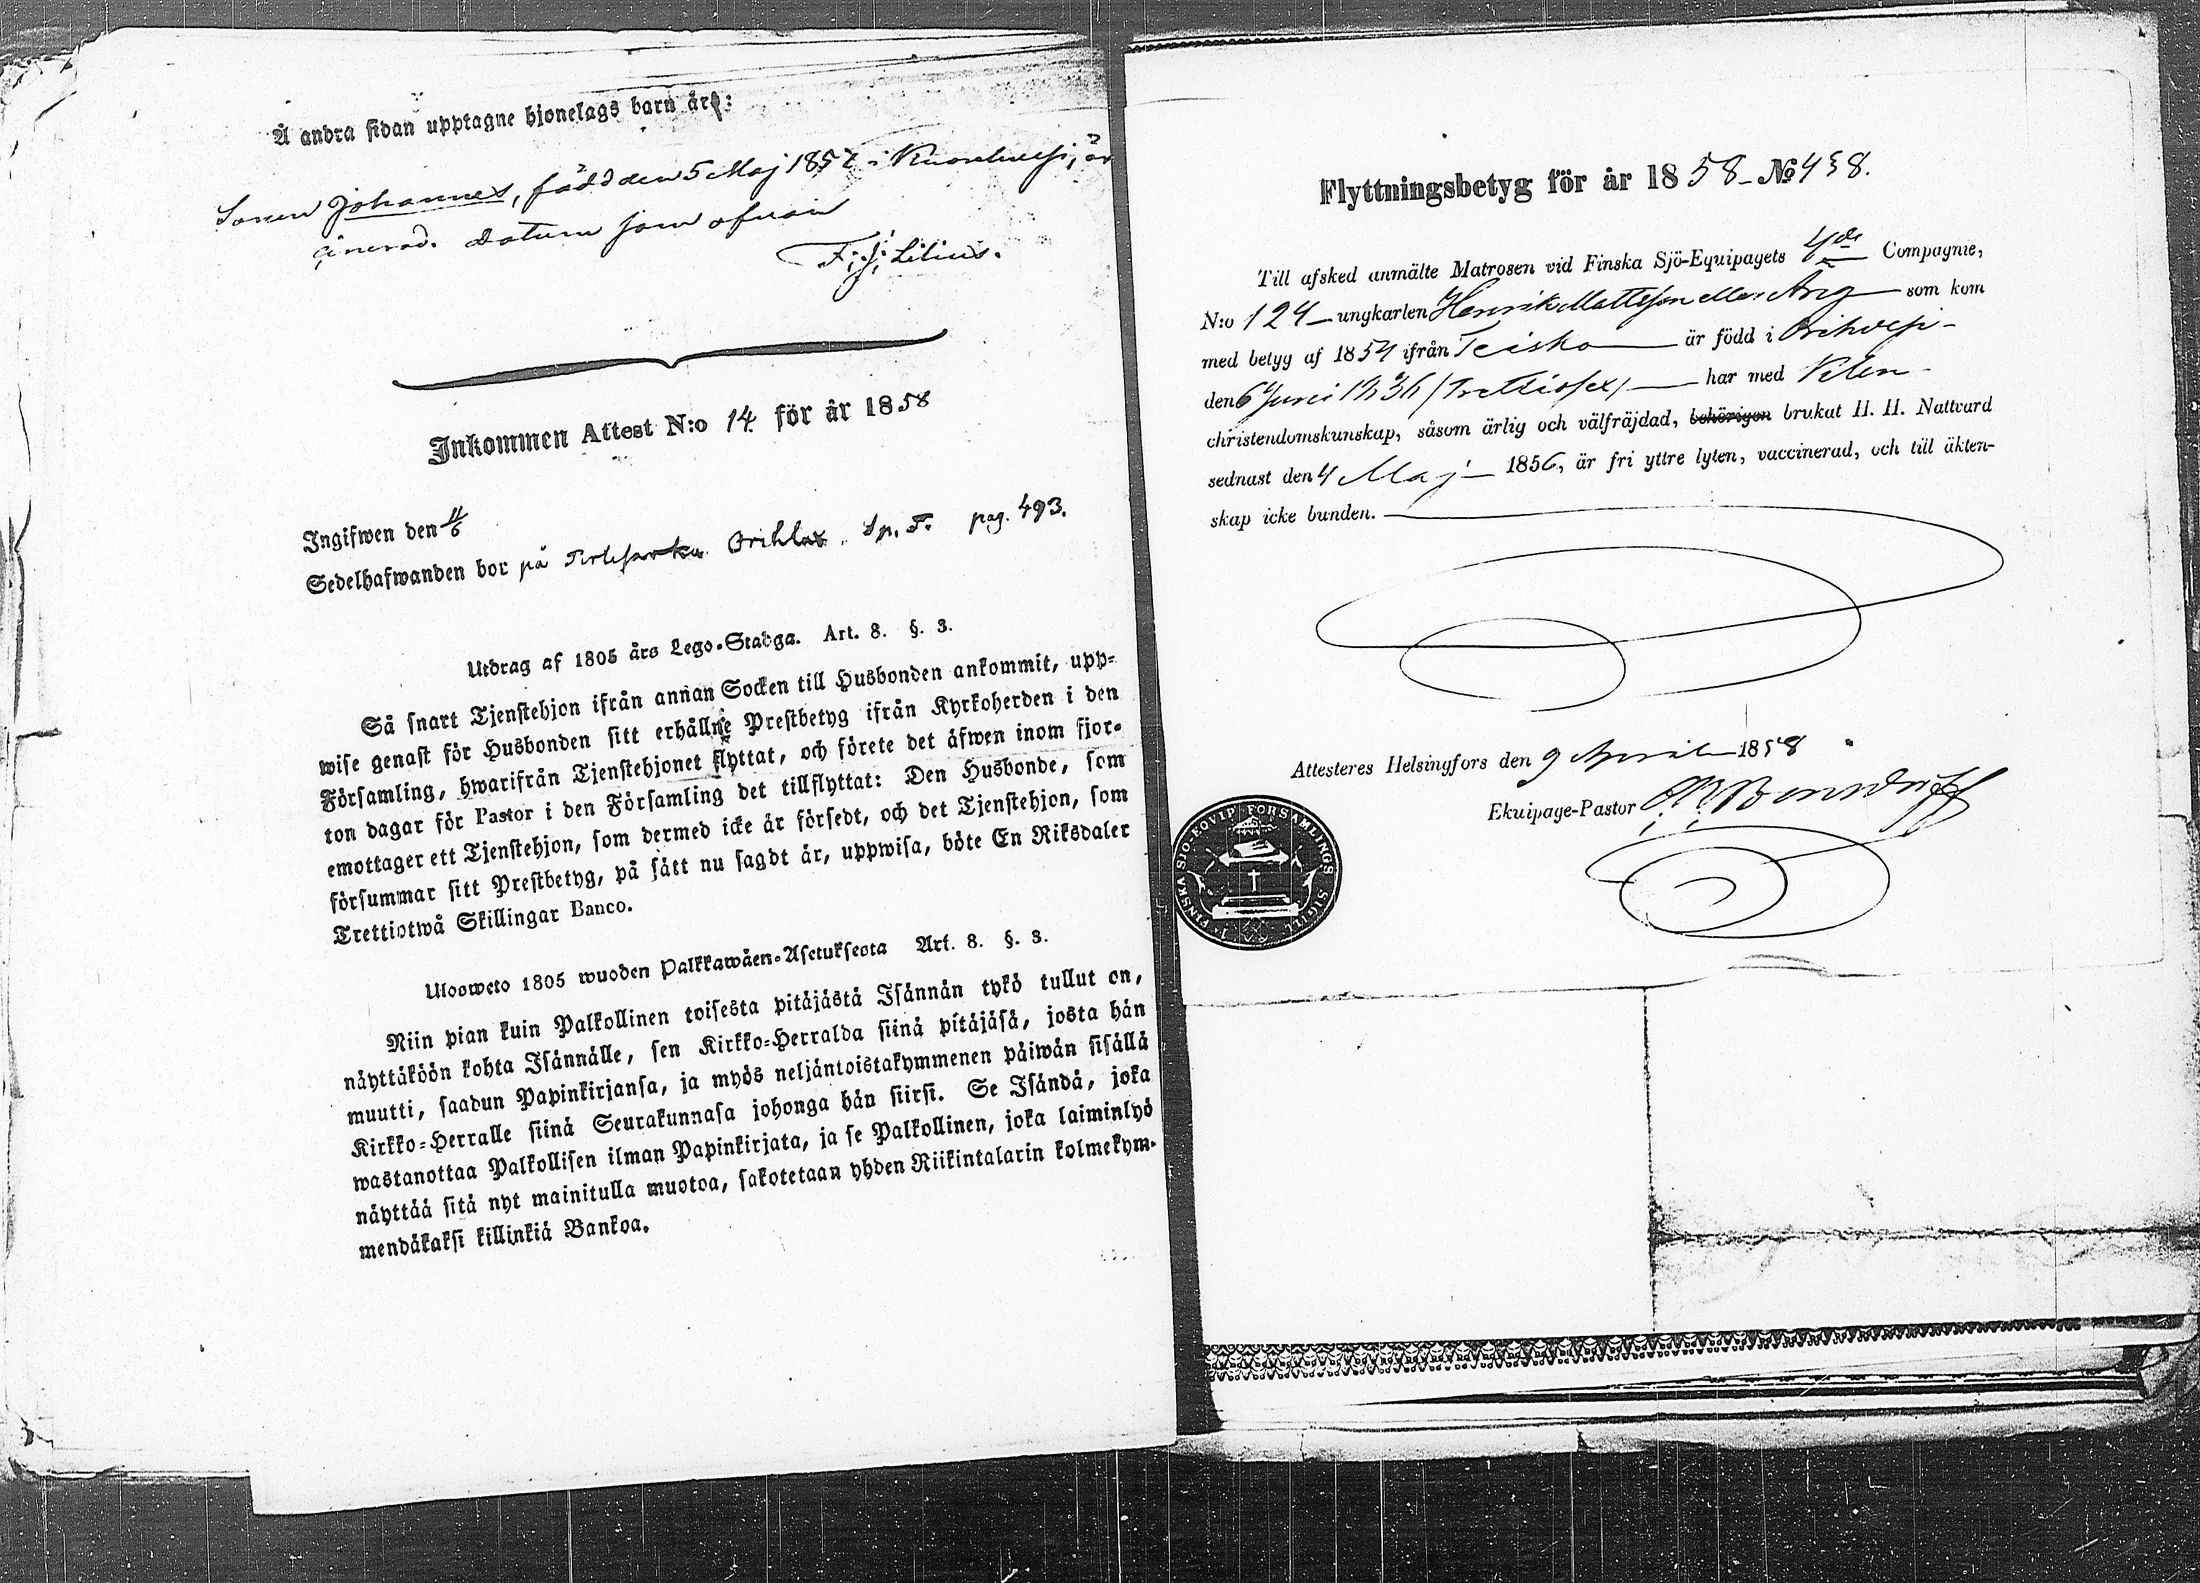 Å andra sidan upptagne hjonelags barn äro:
Sonen Johannes, född den 5 Maj 1857 i Kuorehvesi, är
cinerad. Datum som ofvan
F. J. Lilius.
Inkommen Attest N:o 14 för år 1858
Ingifwen den 11/6
Sedelhafwanden bor på Orihlax. Sp. F. pag. 493.
Utdrag af 1805 års Lego-Stadga. Art. 8. §. 3.
Så snart Tjenstehjon ifrån annan Socken till Husbonden ankommit, upp-
wise genast för Husbonden sitt erhållne Prestbetyg ifrån Kyrkoherden i den
Församling, hwarifrån Tjenstehjonet flyttat, och förete det äfwen inom fjor-
ton dagar för Pastor i den Församling det tillflyttat: Den Husbonde, som
emottager ett Tjenstehjon, som dermed icke är försedt, och det Tjenstehjon, som
försummar sitt Prestbetyg, på sätt nu sagdt är, uppwisa, böte En Riksdaler
Trettiotwå Skillingar Banco.
Ulosweto 1805 wuoden Palkkawäen-Asetuksesta Art. 8. §. 3.
Niin pian kuin Palkollinen toisesta pitäjästä Isännän tykö tullut on,
näyttäköön kohta Isännälle, sen Kirkko-Herralda siinä pitäjäsä, josta hän
muutti, saadun Papinkirjansa, ja myös neljäntoistakymmenen päiwän sisällä
Kirkko-Herralle siinä Seurakunnasa johonga hän siirsi. Se Isändä, joka
wastanottaa Palkollisen ilman Papinkirjata, ja se Palkollinen, joka laiminlyö
näyttää sitä nyt mainitulla muotoa, sakotetaan yhden Riikintalarin kolmekym-
mendäkaksi killinkiä Bankoa.
Flyttningsbetyg för år 1858 - No 458.
Till afsked anmälte Matrosen vid Finska Sjö-Equipagets 4de Compagnie,
N:o 124 - ungkarlen Henrik Mattsson eller Arg som kom
med betyg af 1854 ifrån Teisko är född i Orihvesi -
den 6 Juni 1836 (Trettiosex) har med
christendomskunskap, såsom ärlig och välfräjdad, behörigen brukat H. H. Nattvard
sednast den 4 Maj 1856, är fri yttre lyten, vaccinerad, och till äkten-
skap icke bunden.
Attesteres Helsingfors den 9 April 1858
Ekuipage-Pastor Bonsdorff
FINSKA SJÖ-EQVIP FÖRSAMLINGS SIGILL